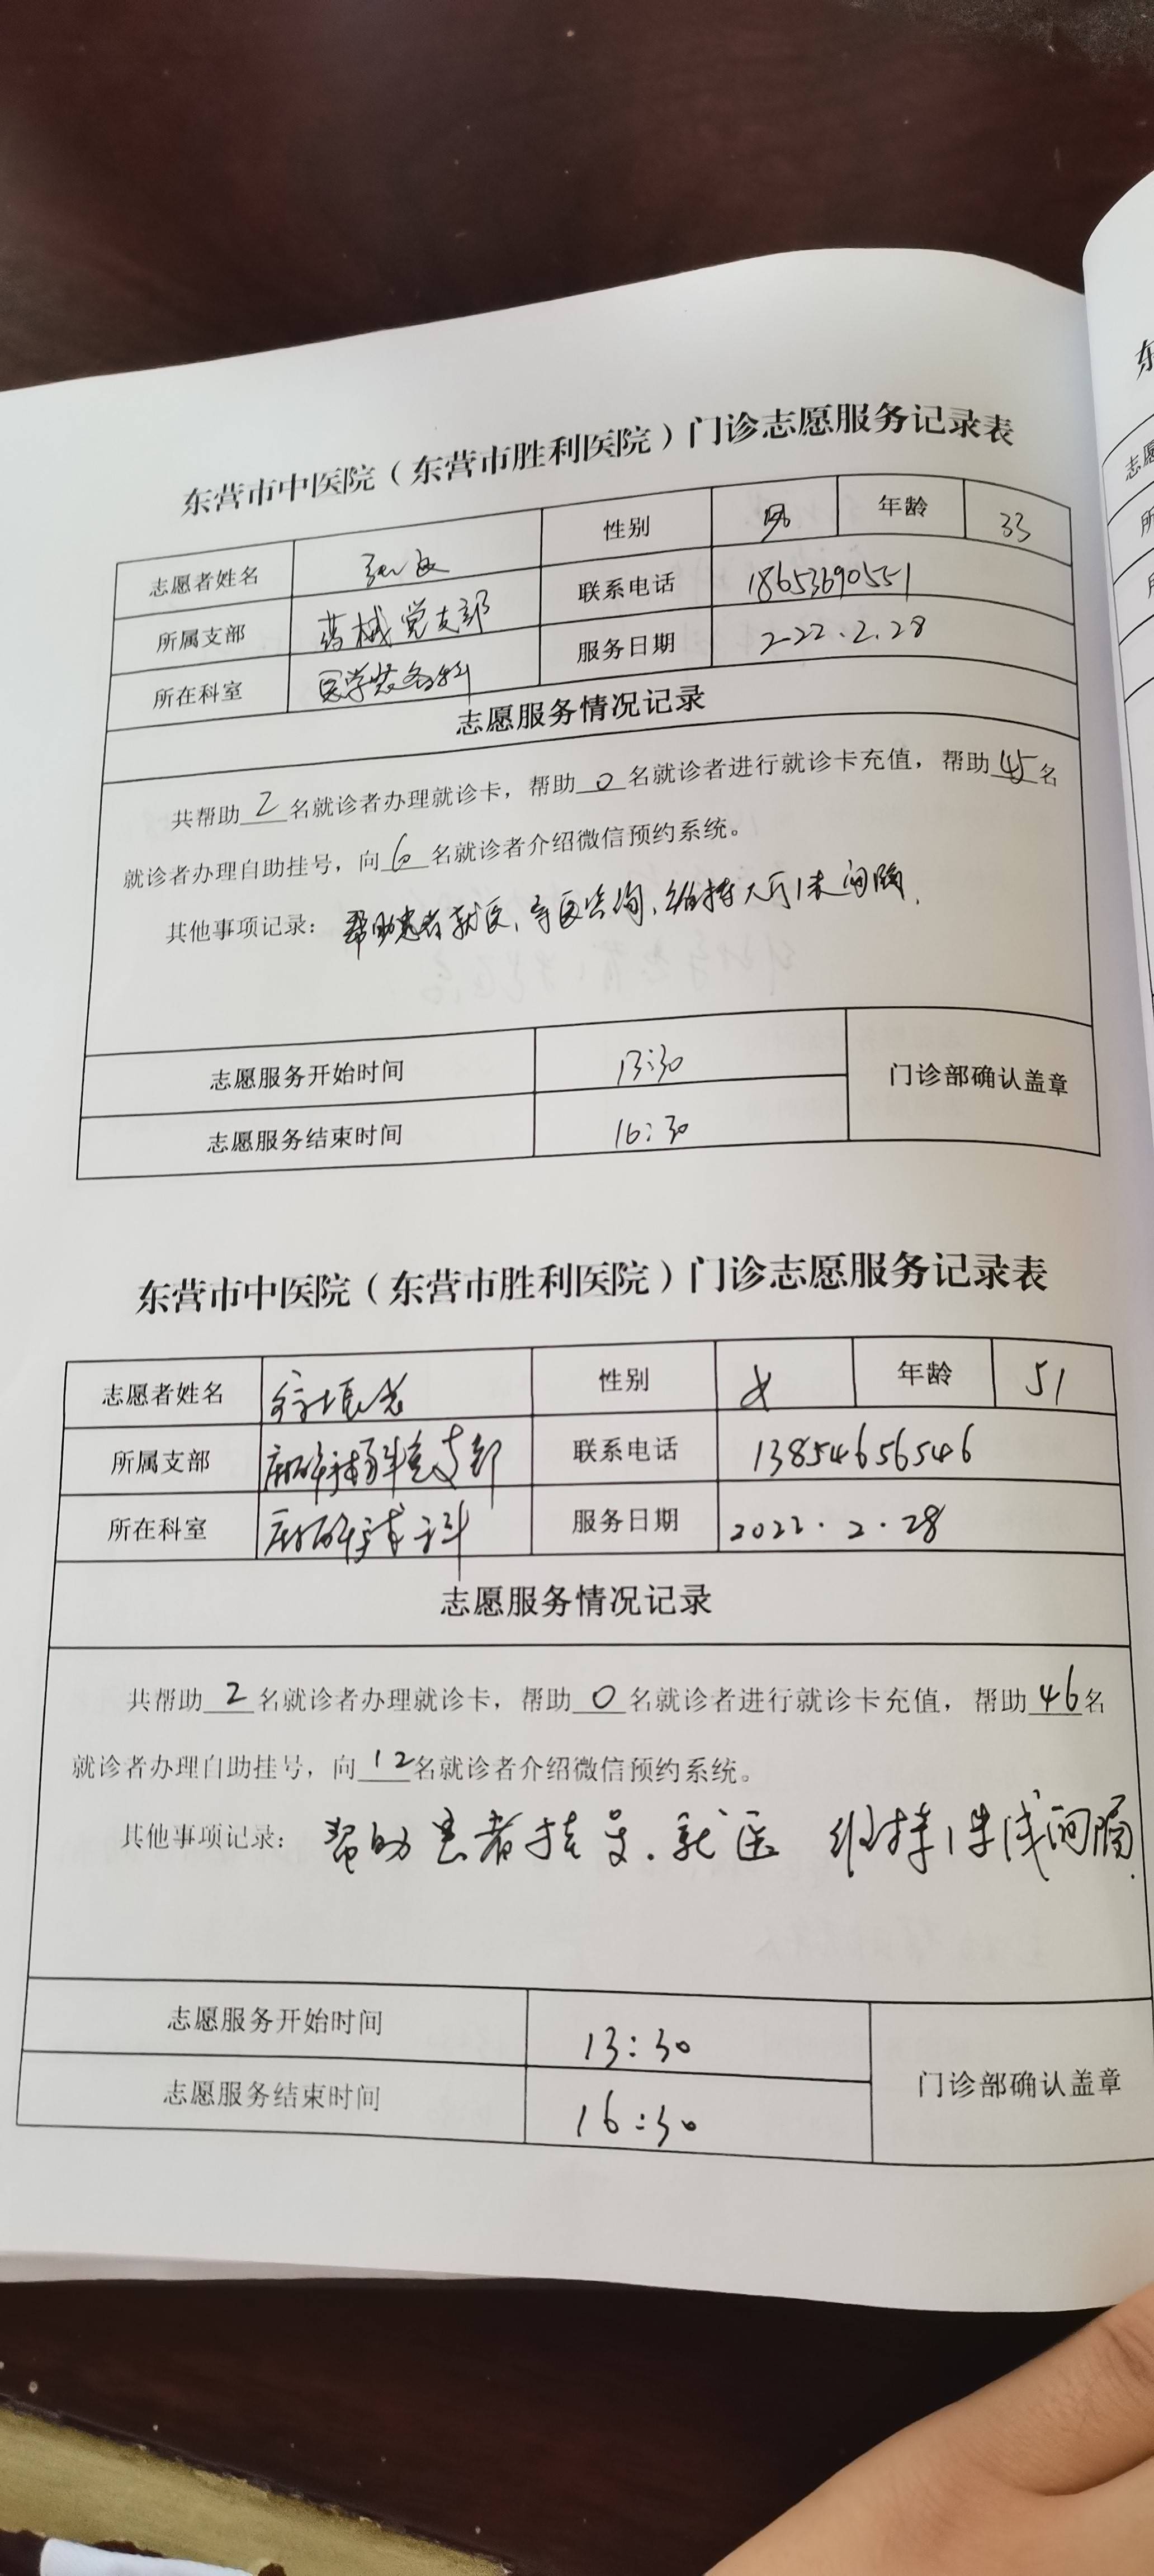 东营市中医院（东营市胜利医院）门诊志愿服务记录表
志愿者姓名 性别 男 年龄 33
所属支部 药械党支部 联系电话 18653690551
所在科室 医学装备科 服务日期 2022.2.28
志愿服务情况记录
共帮助 2 名就诊者办理就诊卡，帮助 0 名就诊者进行就诊卡充值，帮助 45 名
就诊者办理自助挂号，向 名就诊者介绍微信预约系统。
其他事项记录：帮助患者就医、导医咨询、维持大厅1米间隔.
志愿服务开始时间 13:30 门诊部确认盖章
志愿服务结束时间 16:30
东营市中医院（东营市胜利医院）门诊志愿服务记录表
志愿者姓名 性别 女 年龄 51
所属支部 联系电话 13854656546
所在科室 服务日期 2022.2.28
志愿服务情况记录
共帮助 2 名就诊者办理就诊卡，帮助 0 名就诊者进行就诊卡充值，帮助 46 名
就诊者办理自助挂号，向 12 名就诊者介绍微信预约系统。
其他事项记录：帮助患者挂号.就医 维持1米线间隔.
志愿服务开始时间 13:30 门诊部确认盖章
志愿服务结束时间 16:30